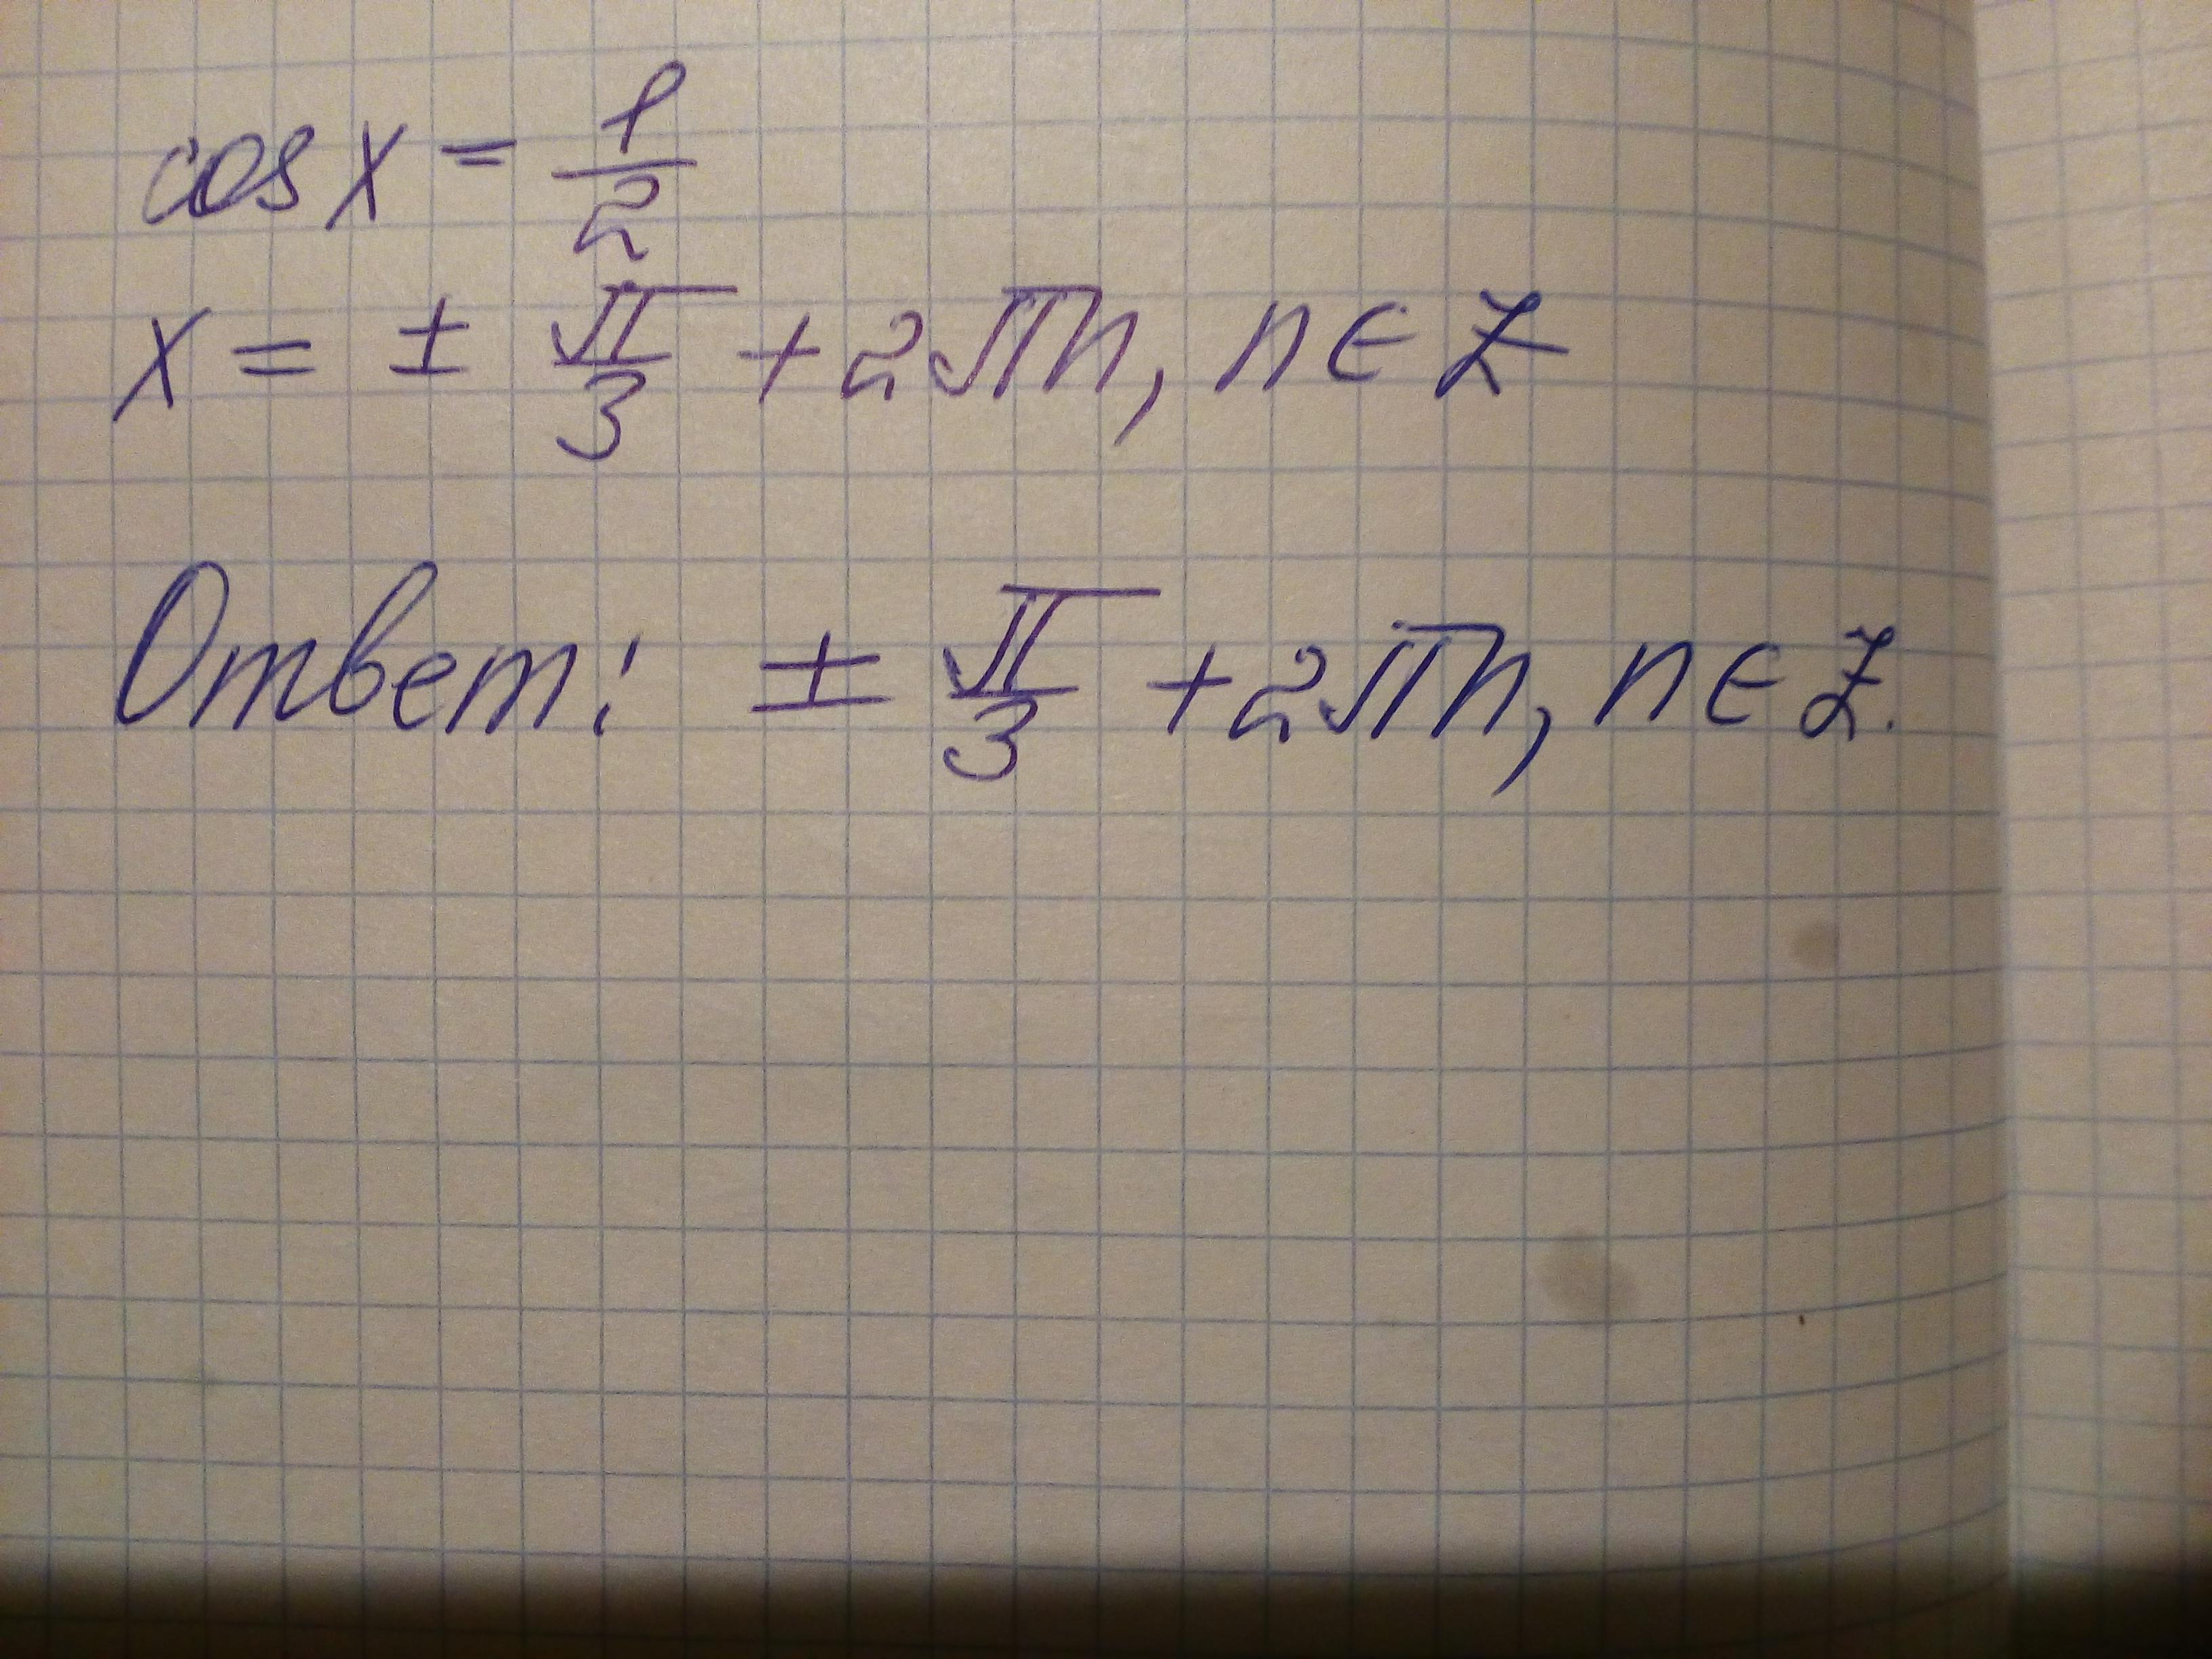 cos x = 1/2
x = ± π/3 + 2πn, n ∈ Z
Ответ: ± π/3 + 2πn, n ∈ Z.